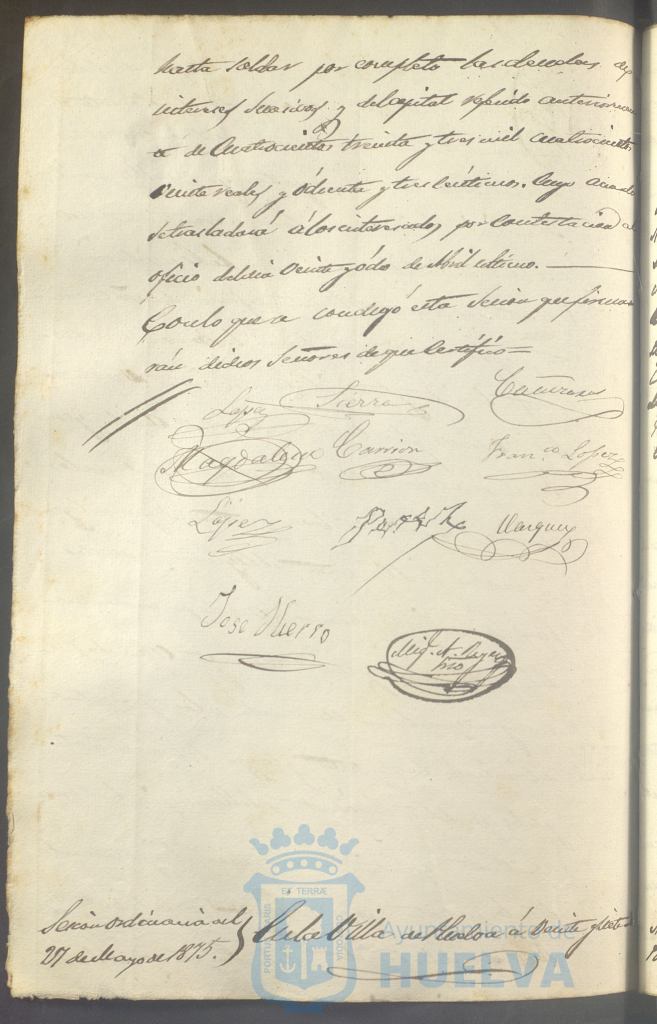 hasta soldar por completo las deudas de
intereses sucesivos y del capital referido anteriormen
te de Cuatrocientos treinta y tres mil cuatrocientos
veinte reales y ochenta y tres céntimos. Cuyo acuerdo
se trasladará á los interesados por contestacion al
oficio del dia veinte y ocho de Abril ultimo.
Con lo que se concluyó esta Sesion que firma
rán dichos Señores de que Certifico=
Lopez Sierra
Magdalena Carrion Franco Lopez
Lopez Marquez
Jose Hierro
Sesion ordinaria del
27 de Mayo de 1875.
En la Villa de Huelva á Veinte y siete de
ET TERRÆ
PORTUS MARIS
CUSTODIA
Ayuntamiento de
HUELVA